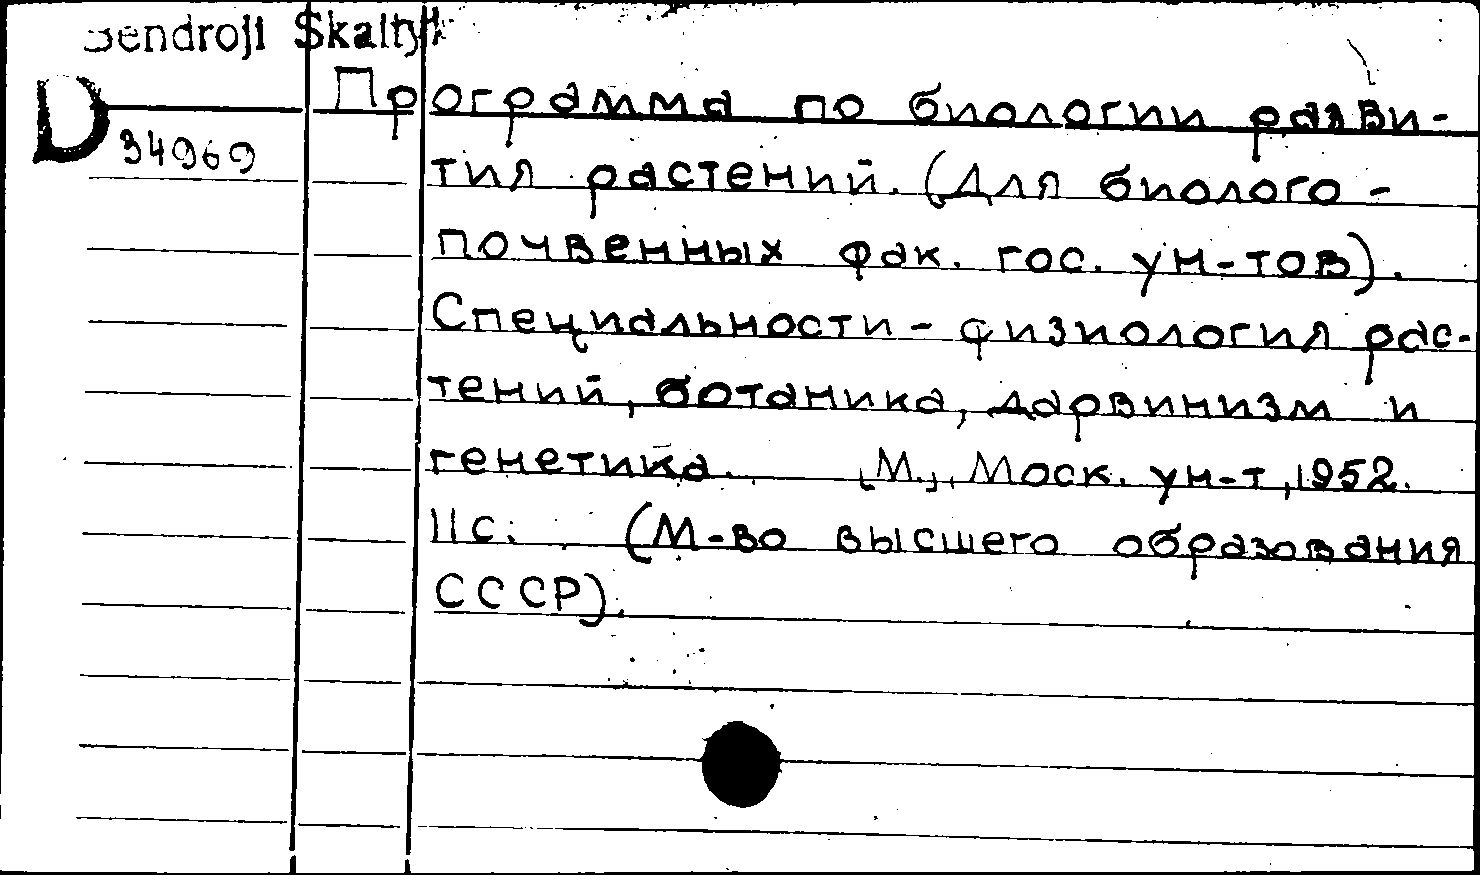 Bendroji Skaityk
D
34969
Программа по биологии разви-
тия растений. (Для биолого-
почвенных фак. гос. ун-тов).
Специальности - физиология рас-
тений, ботаника, дарвинизм и
генетика. [М.], Моск. ун-т, 1952.
11 с. (М-во высшего образования
СССР).